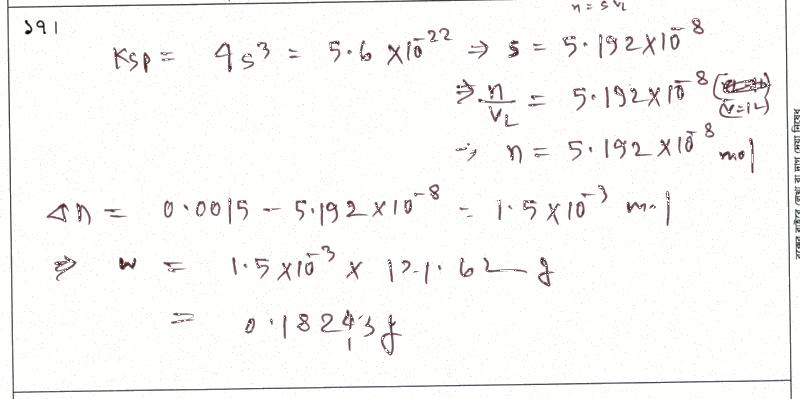 n = s V_L
১৭।
Ksp = 4s³ = 5.6 × 10⁻²² ⇒ s = 5.192 × 10⁻⁸
⇒ n/V_L = 5.192 × 10⁻⁸ (V=1L)
⇒ n = 5.192 × 10⁻⁸ mol
Δn = 0.0015 − 5.192 × 10⁻⁸ = 1.5 × 10⁻³ mol
⇒ w = 1.5 × 10⁻³ × 121.62 g
= 0.18243 g